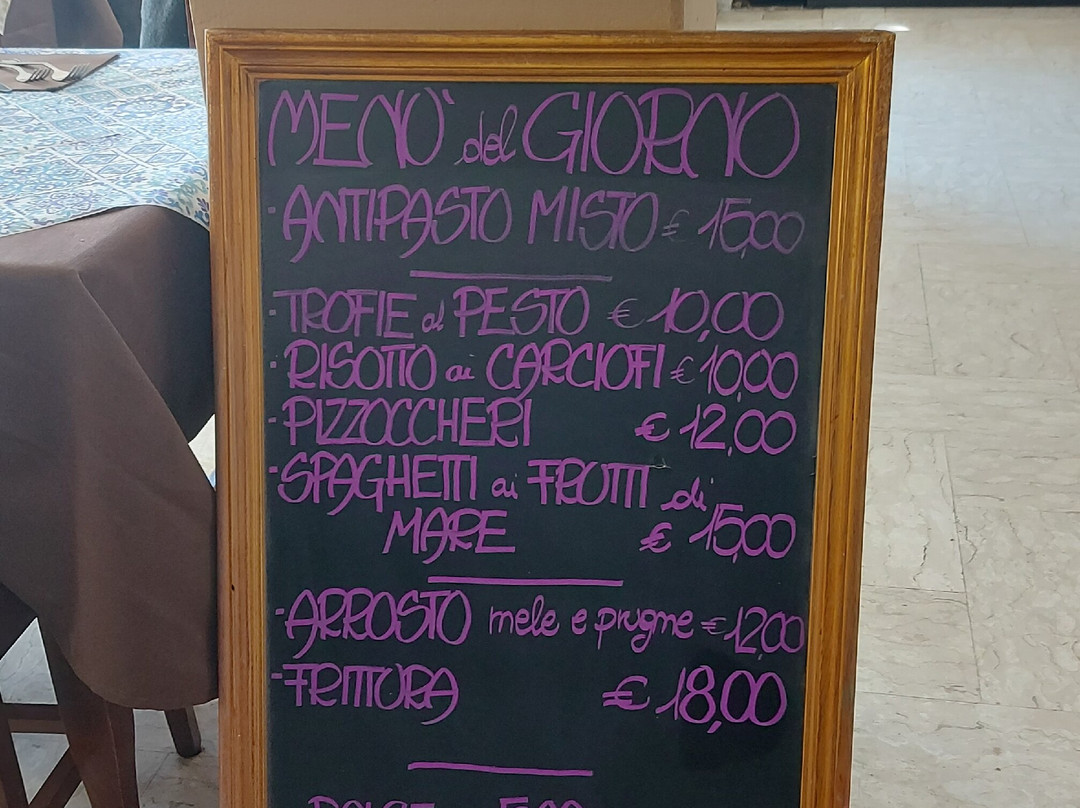 MENÙ del GIORNO
- ANTIPASTO MISTO € 15,00
- TROFIE al PESTO € 10,00
- RISOTTO ai CARCIOFI € 10,00
- PIZZOCCHERI € 12,00
- SPAGHETTI ai FRUTTI di
MARE € 15,00
- ARROSTO mele e prugne € 12,00
- FRITTURA € 18,00